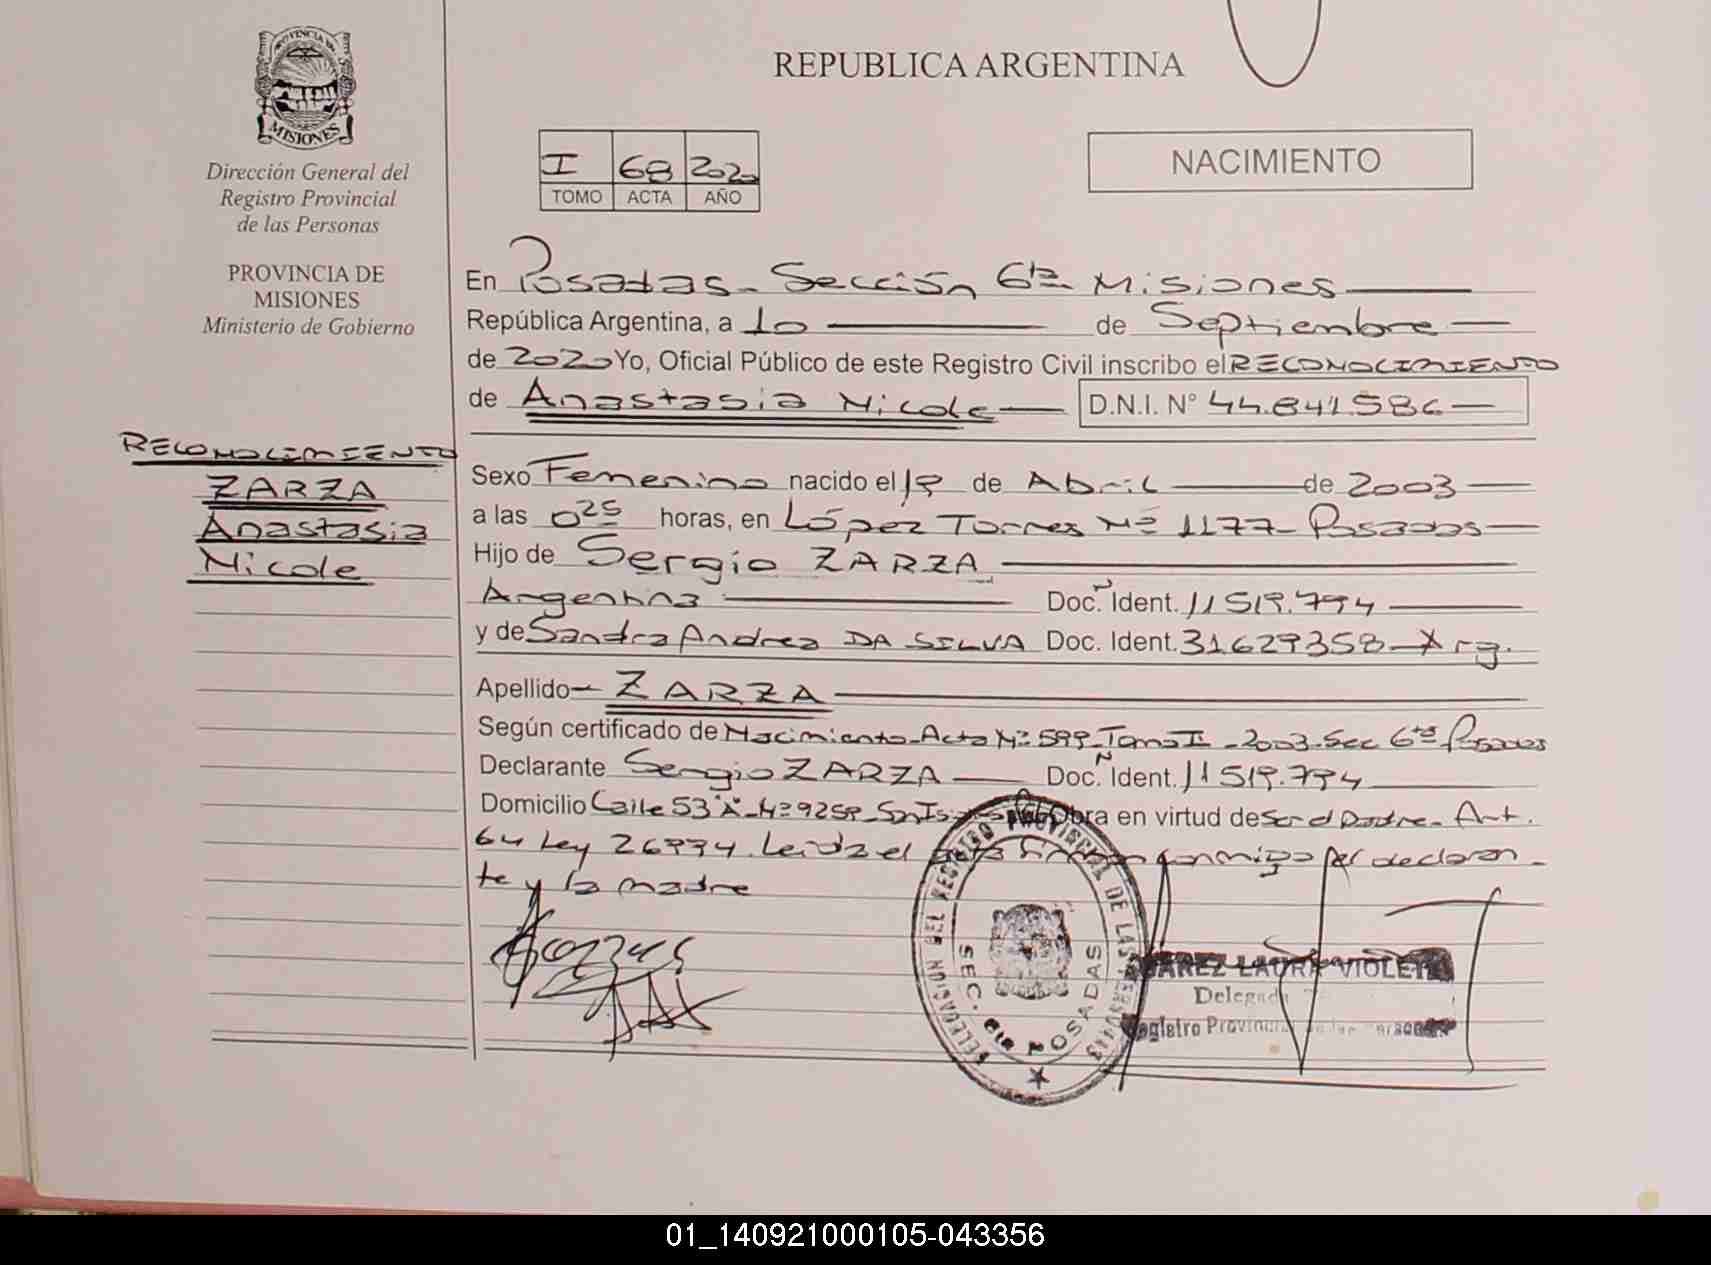 PROVINCIA DE
MISIONES
Dirección General del
Registro Provincial
de las Personas
PROVINCIA DE
MISIONES
Ministerio de Gobierno
RECONOCIMIENTO
ZARZA
Anastasia
Nicole
REPUBLICA ARGENTINA
I 68 2020
TOMO ACTA AÑO
NACIMIENTO
En Posadas - Sección 6ta Misiones
República Argentina, a 10 de Septiembre
de 2020 Yo, Oficial Público de este Registro Civil inscribo el RECONOCIMIENTO
de Anastasia Nicole D.N.I. N° 44.841.586
Sexo Femenino nacido el de Abril de 2003
a las 0 25 horas, en López Torres Nº 1177 - Posadas
Hijo de Sergio ZARZA
Argentina Doc. Ident. 11519.794
y de Sandra Andrea DA SILVA Doc. Ident. 31629358 - Arg.
Apellido ZARZA
Según certificado de Nacimiento - Acta Nº 599 - Tomo I - 2003 - Sec 6ta Posadas
Declarante Sergio ZARZA Doc. Ident. 11519.794
Domicilio Calle 53 "A" - Nº 9259 - Obra en virtud de ser el Padre - Art.
64 Ley 26994. Leída el acta firman conmigo el declaran-
te y la madre
DELEGACION DEL REGISTRO PROVINCIAL DE LAS PERSONAS
SEC. 6ta POSADAS
LAURA VIOLETA
Registro
01_140921000105-043356